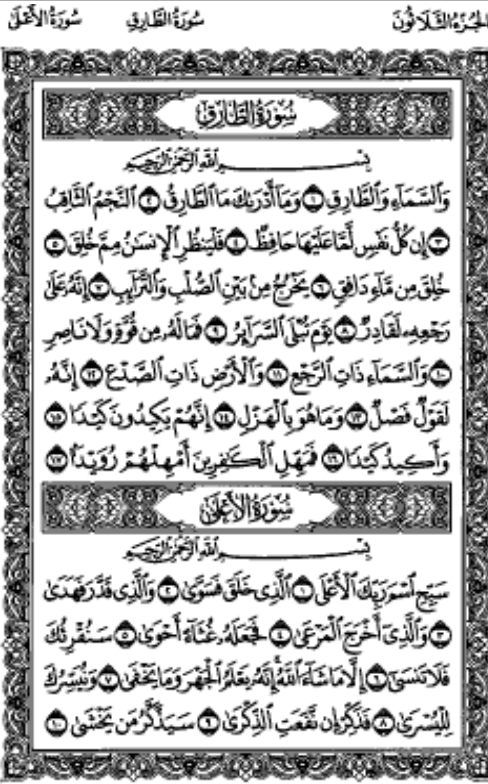 الجزء الثلاثون سورة الطارق سورة الأعلى
سورة الطارق
بِسْمِ اللَّهِ الرَّحْمَٰنِ الرَّحِيمِ
وَالسَّمَاءِ وَالطَّارِقِ ١ وَمَا أَدْرَىٰكَ مَا الطَّارِقُ ٢ النَّجْمُ الثَّاقِبُ
٣ إِن كُلُّ نَفْسٍ لَّمَّا عَلَيْهَا حَافِظٌ ٤ فَلْيَنظُرِ الْإِنسَٰنُ مِمَّ خُلِقَ ٥
خُلِقَ مِن مَّاءٍ دَافِقٍ ٦ يَخْرُجُ مِنۢ بَيْنِ الصُّلْبِ وَالتَّرَائِبِ ٧ إِنَّهُ عَلَىٰ
رَجْعِهِ لَقَادِرٌ ٨ يَوْمَ تُبْلَى السَّرَائِرُ ٩ فَمَا لَهُ مِن قُوَّةٍ وَلَا نَاصِرٍ
١٠ وَالسَّمَاءِ ذَاتِ الرَّجْعِ ١١ وَالْأَرْضِ ذَاتِ الصَّدْعِ ١٢ إِنَّهُ
لَقَوْلٌ فَصْلٌ ١٣ وَمَا هُوَ بِالْهَزْلِ ١٤ إِنَّهُمْ يَكِيدُونَ كَيْدًا ١٥
وَأَكِيدُ كَيْدًا ١٦ فَمَهِّلِ الْكَٰفِرِينَ أَمْهِلْهُمْ رُوَيْدًۢا ١٧
سورة الأعلى
بِسْمِ اللَّهِ الرَّحْمَٰنِ الرَّحِيمِ
سَبِّحِ اسْمَ رَبِّكَ الْأَعْلَى ١ الَّذِي خَلَقَ فَسَوَّىٰ ٢ وَالَّذِي قَدَّرَ فَهَدَىٰ
٣ وَالَّذِي أَخْرَجَ الْمَرْعَىٰ ٤ فَجَعَلَهُ غُثَاءً أَحْوَىٰ ٥ سَنُقْرِئُكَ
فَلَا تَنسَىٰ ٦ إِلَّا مَا شَاءَ اللَّهُ إِنَّهُ يَعْلَمُ الْجَهْرَ وَمَا يَخْفَىٰ ٧ وَنُيَسِّرُكَ
لِلْيُسْرَىٰ ٨ فَذَكِّرْ إِن نَّفَعَتِ الذِّكْرَىٰ ٩ سَيَذَّكَّرُ مَن يَخْشَىٰ ١٠